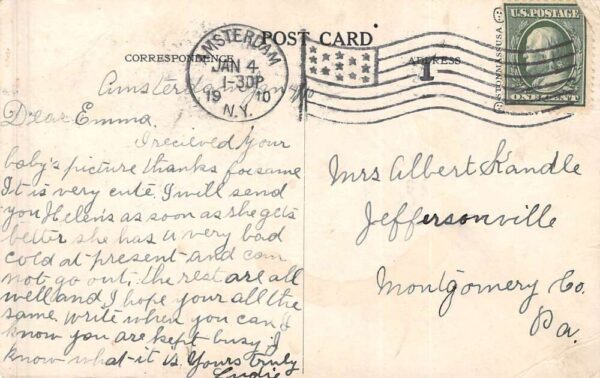 POST CARD
CORRESPONDENCE
ADDRESS
U.S. POSTAGE
ONE CENT
AMSTERDAM
JAN 4
1-30P
1910
N.Y.
1
Amsterdam
Dear Emma
I recieved your
baby's picture thanks for same
It is very cute. I will send
you Helens as soon as she gets
better she has a very bad
cold at present and can
not go out, the rest are all
well and I hope your all the
same. Write when you can I
know you are kept busy I
know what it is. Yours truly
Mrs Albert Kandle
Jeffersonville
Montgomery Co.
Pa.